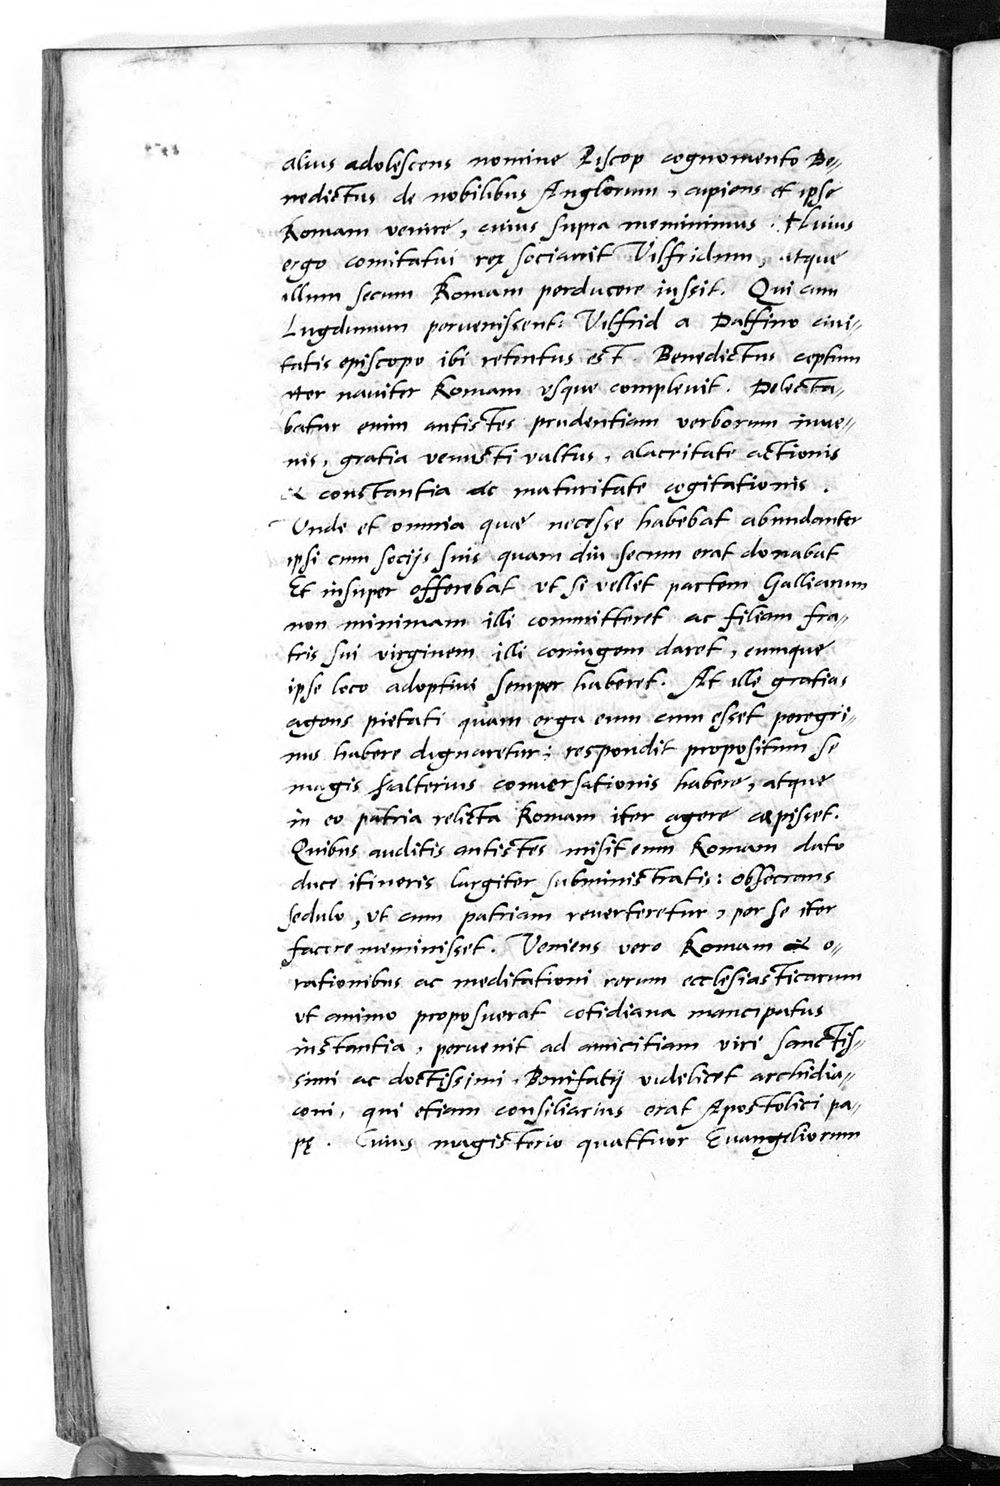 alius adolescens nomine Piscop cognomento Be-
nedictus de nobilibus Anglorum, cupiens et ipse
Romam venire, cuius supra meminimus. Huius
ergo comitatui rex sociavit Vilfridum, atque
illum secum Romam perducere iussit. Qui cum
Lugdunum pervenissent: Vilfrid a Dalfino civi-
tatis episcopo ibi retentus est. Benedictus ceptum
iter naviter Romam usque complevit. Delecta-
batur enim antistes prudentiam verborum iuve-
nis, gratia venusti vultus, alacritate actionis
& constantia ac maturitate cogitationis.
Unde et omnia quae necesse habebat abundanter
ipsi cum socijs suis quam diu secum erat donabat
Et insuper offerebat ut si vellet partem Galliarum
non minimam illi committeret ac filiam fra-
tris sui virginem illi coniugem daret, eumque
ipse loco adoptivi semper haberet. At ille gratias
agens pietati quam erga eum cum esset peregri-
nus habere dignaretur: respondit propositum se
magis alterius conversationis habere, atque
in eo patria relicta Romam iter agere cœpisset.
Quibus auditis antistes misit eum Romam dato
duce itineris largiter subministratis: obsecrans
sedulo, ut cum patriam reverteretur, per se iter
facere meminisset. Veniens vero Romam & o-
rationibus ac meditationi rerum ecclesiasticarum
ut animo proposuerat cotidiana mancipatus
instantia, pervenit ad amicitiam viri sanctis-
simi ac doctissimi, Bonifatij videlicet archidia-
coni, qui etiam consiliarius erat Apostolici pa-
pę. Cuius magisterio quattuor Evangeliorum